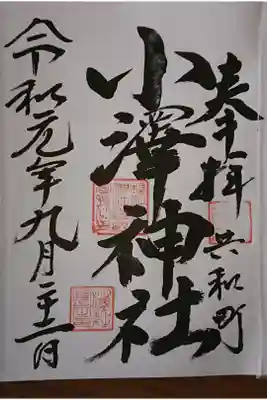 奉拝
共和町
小澤神社
令和元年九月二十一日